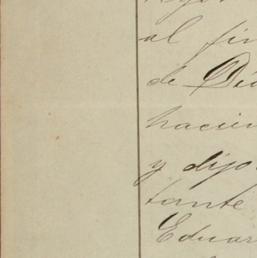 al fin
de Di
hacien
y dijo
tante
Eduar